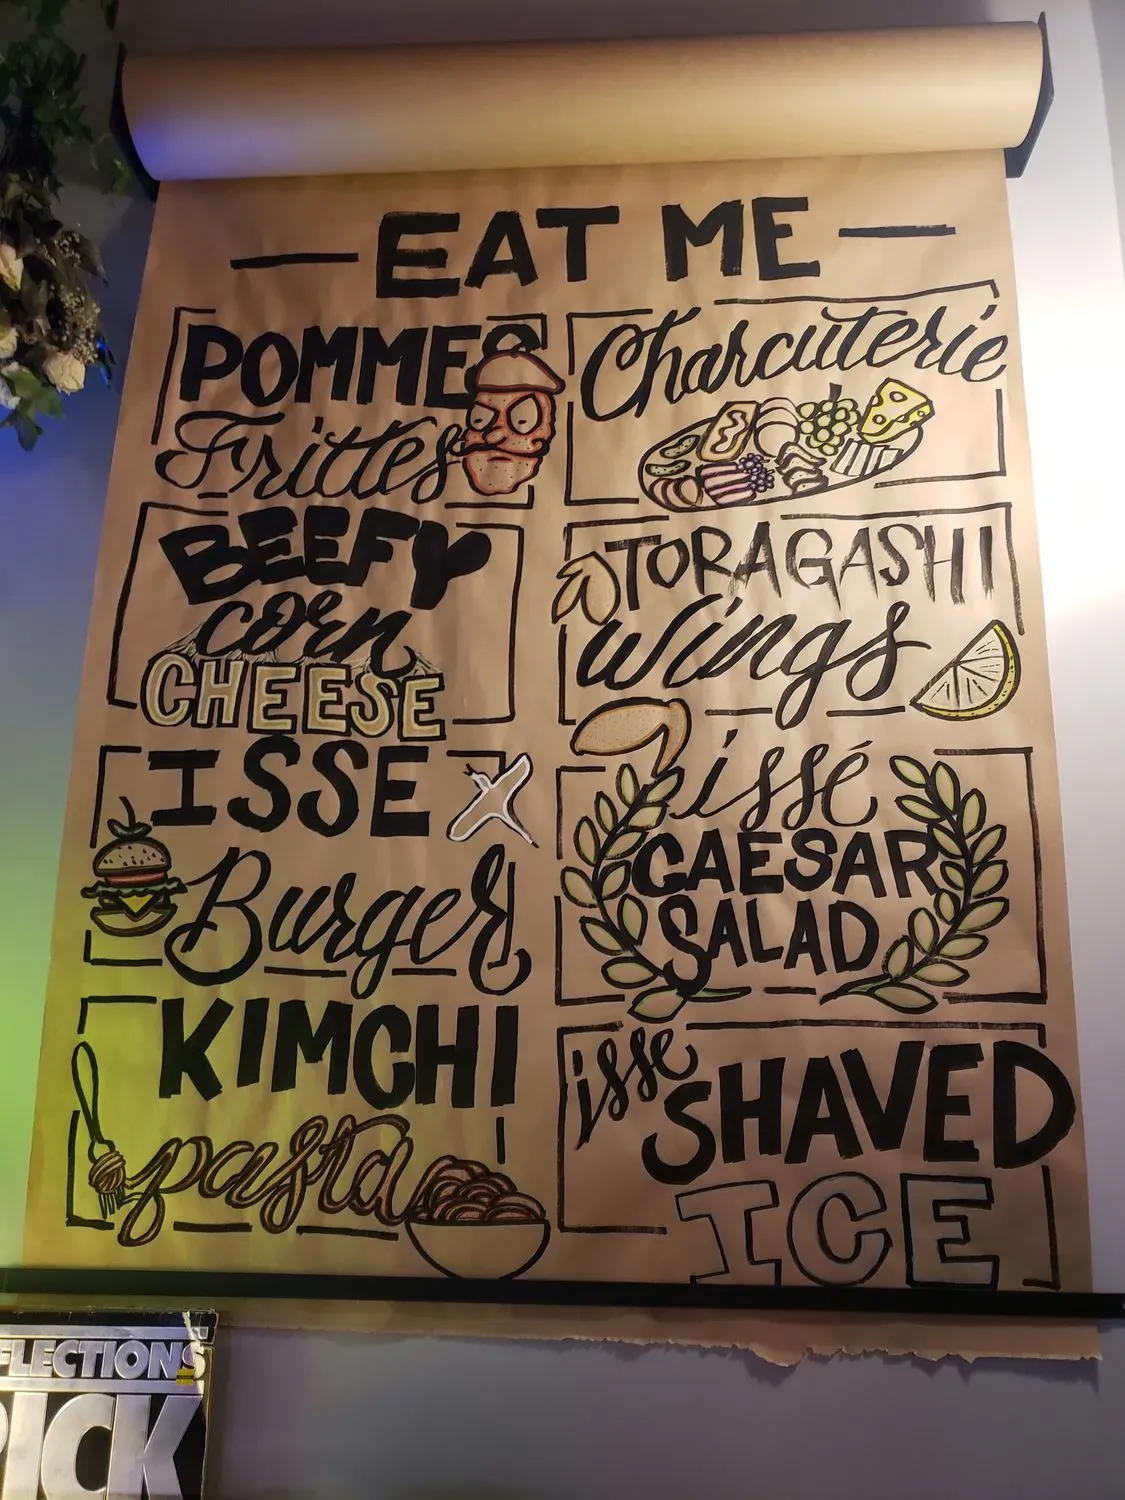 EAT ME
POMMES
Frittes
BEEFY
corn
CHEESE
ISSE
Burger
KIMCHI
pasta
Charcuterie
TORAGASHI
Wings
issé
CAESAR
SALAD
isse
SHAVED
ICE
FLECTIONS
PICK